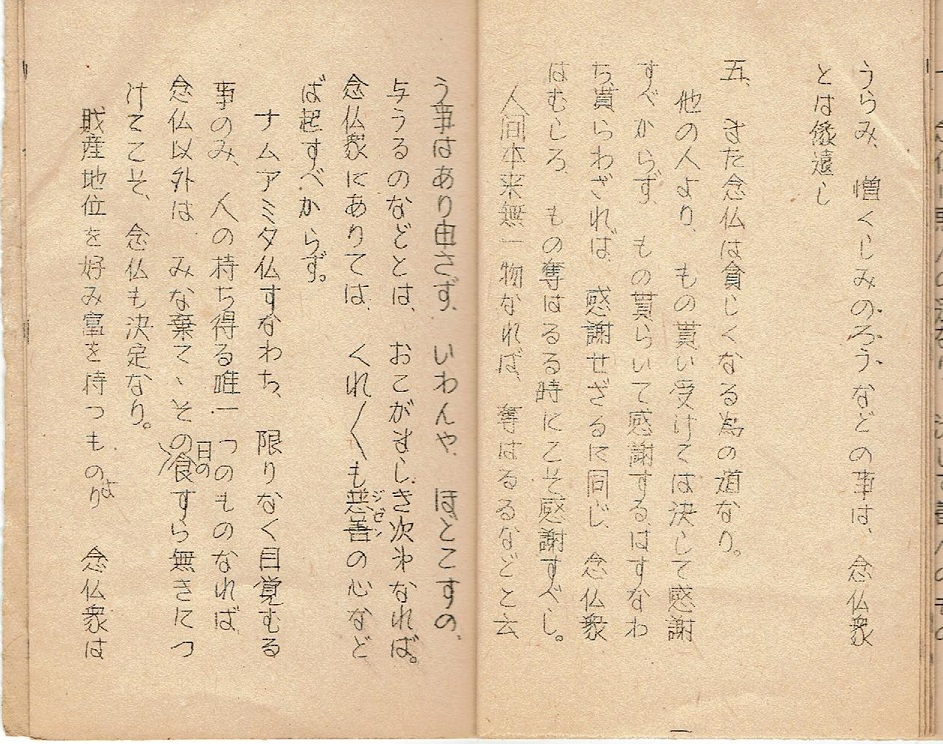 うらみ、憎くしみのろう、などの事は、念仏衆
とは縁遠し
五、また念仏は貧じくなる為の道なり。
他の人より、もの貰い受けては決して感謝
すべからず、もの貰らいて感謝するはすなわ
ち、貰らわざれば、感謝せざるに同じ、念仏衆
はむしろ、もの奪はるる時にこそ感謝すべし。
人间本来無一物なれば、奪はるるなどと云
う事はあり申さず、いわんや、ほどこすの、
与うるのなどとは、おこがましき次オなれば。
念仏衆にありては、くれ〲も慈善の心など
ジゼン
ば起すべからず。
ナムアミタ仏すなわち、限りなく目覚むる
事のみ、人の持ち得る唯一つのものなれば、
念仏以外は、みな棄て、その日の食すら無きにつ
けてこそ、念仏も決定なり。
財産地位を好み富を待つものより、念仏衆は